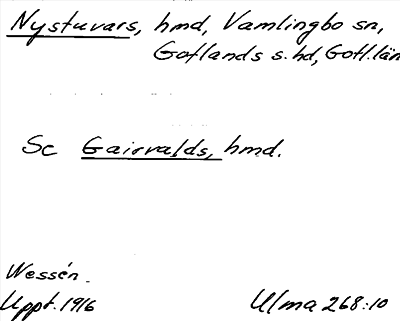 Nystuvars, hmd, Vamlingbo sn,
Gotlands s. hd, Gotl. län
Se Gairvalds, hmd.
Wessén.
Uppt. 1916
Ulma 268:10